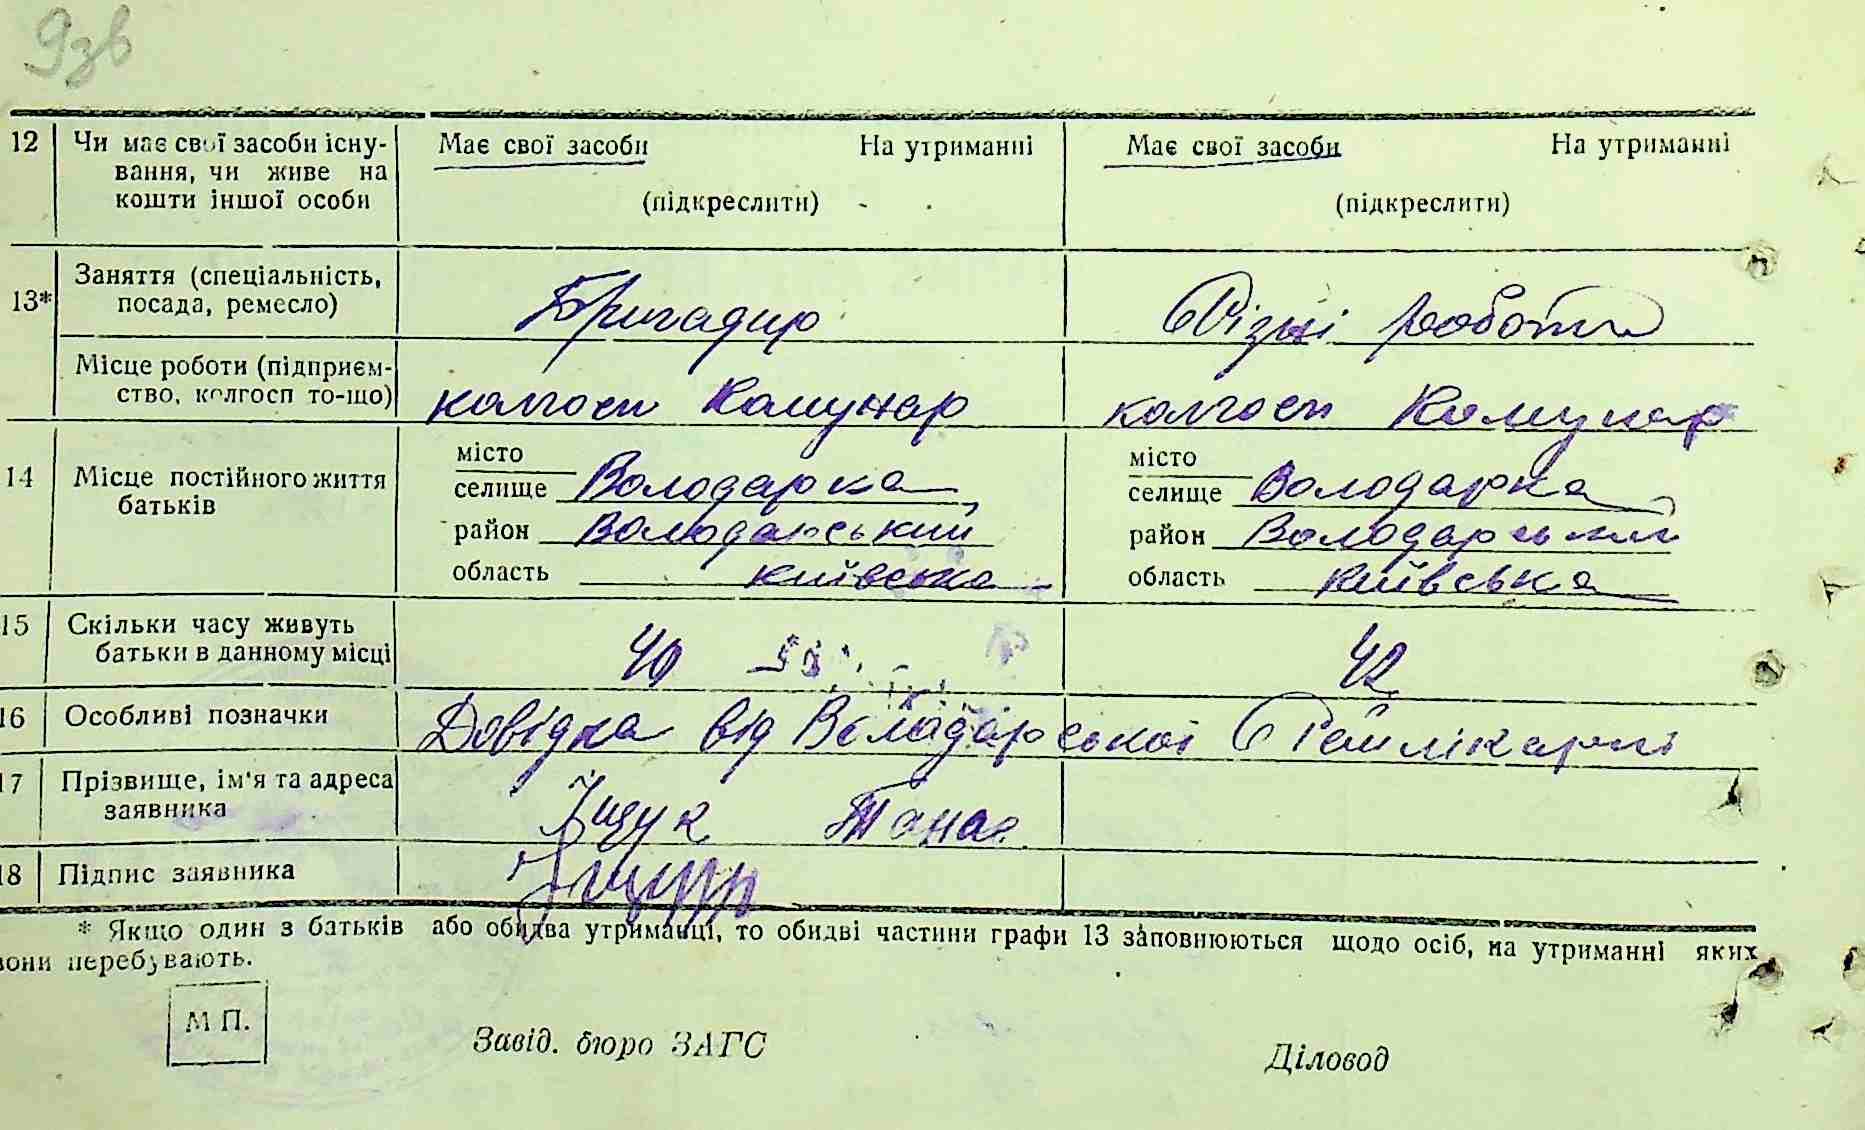 93в
12 Чи має свої засоби існу- Має свої засоби На утриманні Має свої засоби На утриманні
вання, чи живе на
кошти іншої особи (підкреслити) (підкреслити)
Заняття (спеціальність,
13* посада, ремесло) Бригадир Різні роботи
Місце роботи (підприєм-
ство, колгосп то-що) колгосп Комунар колгосп Комунар
місто місто
14 Місце постійного життя селище Володарка селище Володарка
батьків
район Володарський район Володарський
область київська область київська
15 Скільки часу живуть
батьки в данному місці 40 42
16 Особливі позначки Довідка від Володарської Райлікарні
17 Прізвище, ім'я та адреса
заявника Іщук Танас
18 Підпис заявника
* Якщо один з батьків або обидва утриманці, то обидві частини графи 13 заповнюються щодо осіб, на утриманні яких
вони перебувають.
М П.
Завід. бюро ЗАГС Діловод